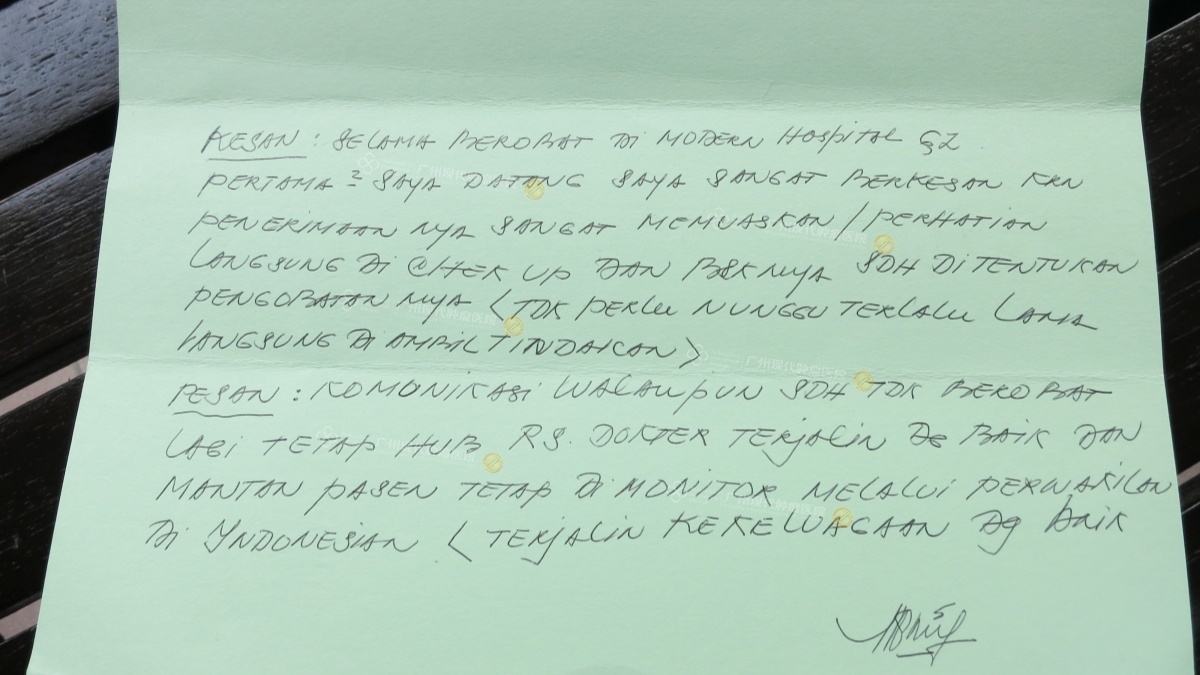 KESAN : SELAMA BEROBAT DI MODERN HOSPITAL GZ.
PERTAMA ² SAYA DATANG SAYA SANGAT BERKESAN KRN
PENERIMAAN NYA SANGAT MEMUASKAN / PERHATIAN
LANGSUNG DI CHEK UP DAN BSKNYA SDH DITENTUKAN
PENGOBATAN NYA ( TDK PERLU NUNGGU TERLALU LAMA
LANGSUNG DI AMBIL TINDAKAN )
PESAN : KOMONIKASI WALAUPUN SDH TDK BEROBAT
LAGI TETAP HUB RS. DOKTER TERJALIN DG BAIK DAN
MANTAN PASEN TETAP DI MONITOR MELALUI PERWAKILAN
DI INDONESIAN ( TERJALIN KEKELUAGAAN DG BAIK